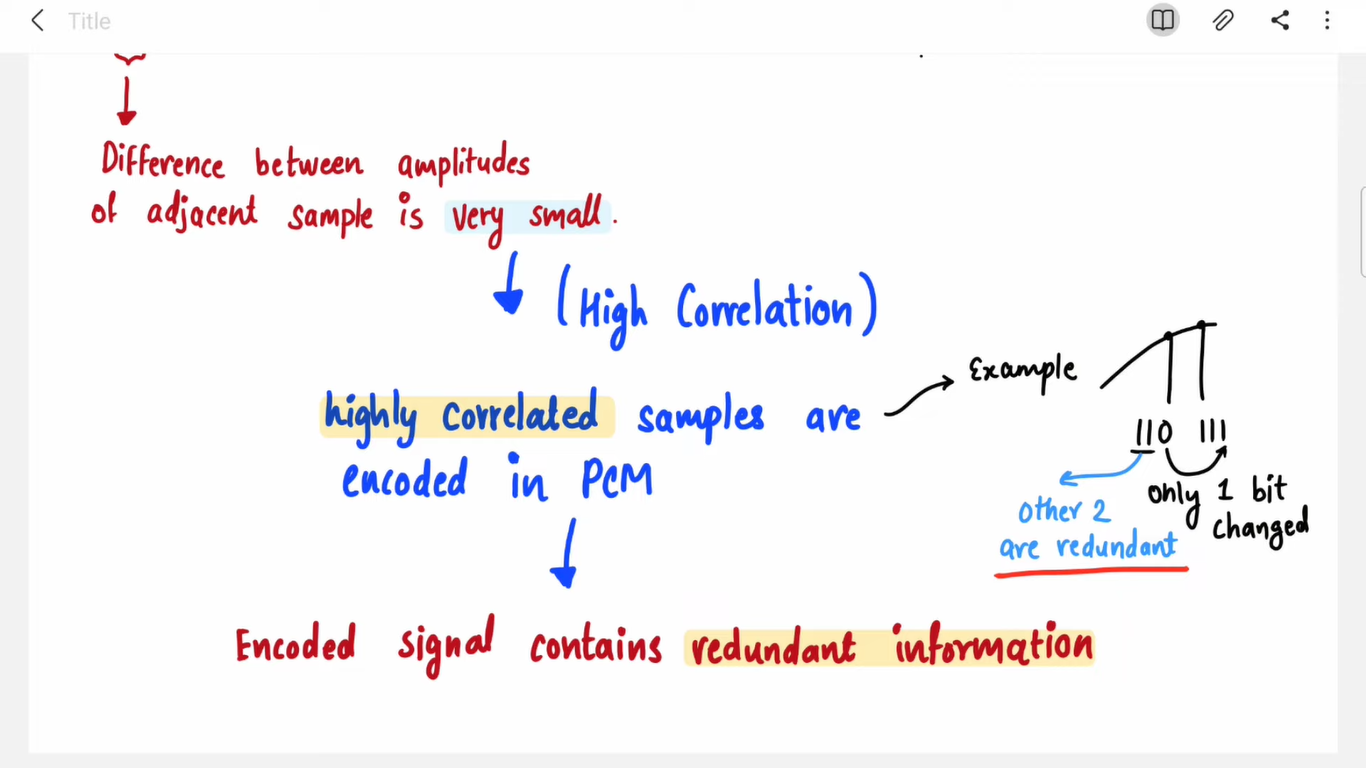 Title
Difference between amplitudes
of adjacent sample is very small.
(High Correlation)
highly correlated samples are
encoded in PCM
Example
110 111
only 1 bit
changed
other 2
are redundant
Encoded signal contains redundant information